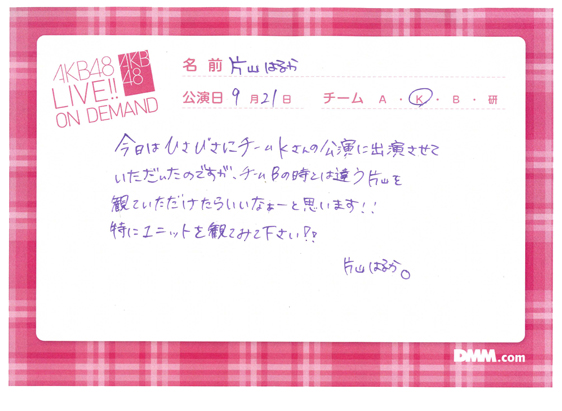 AKB48
LIVE!!
ON DEMAND
AKB
48
名 前 片山はるか
公演日 9 月 21 日 チーム A ・ K ・ B ・ 研
今日はひさびさにチームKさんの公演に出演させて
いただいたのですが、チームBの時とは違う片山を
観ていただけたらいいなぁーと思います!!
特にユニットを観てみて下さい!?
片山はるか。
DMM.com